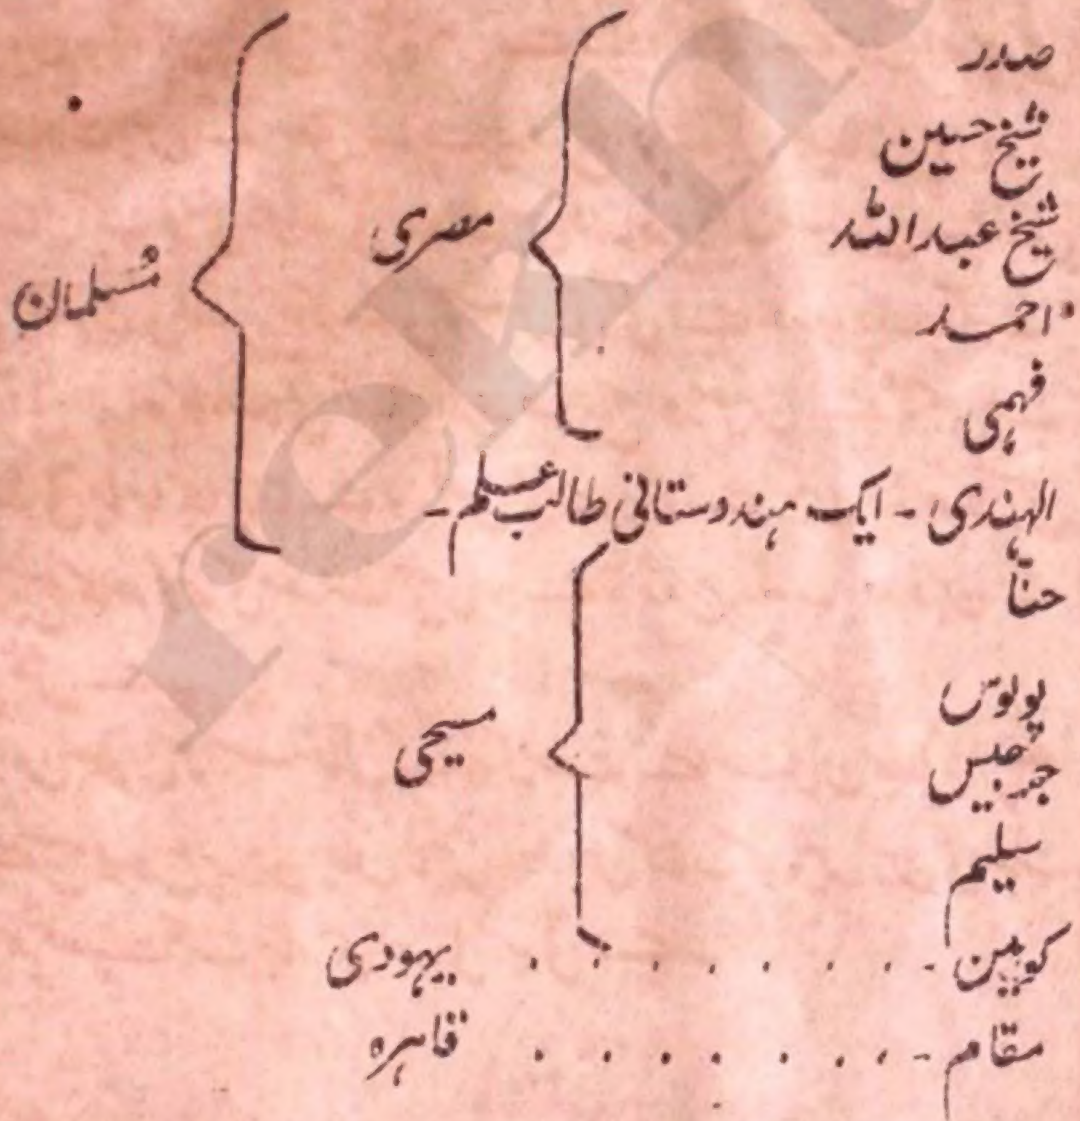 صدر
شیخ حسین
شیخ عبداللہ
احمد
فہمی
مصری
الہندی - ایک ہندوستانی طالب علم -
مُسلمان
حنّا
پولوس
جرجیس
سلیم
مسیحی
کوہین - . . . . . . . یہودی
مقام - . . . . . . . قاہرہ
rekh